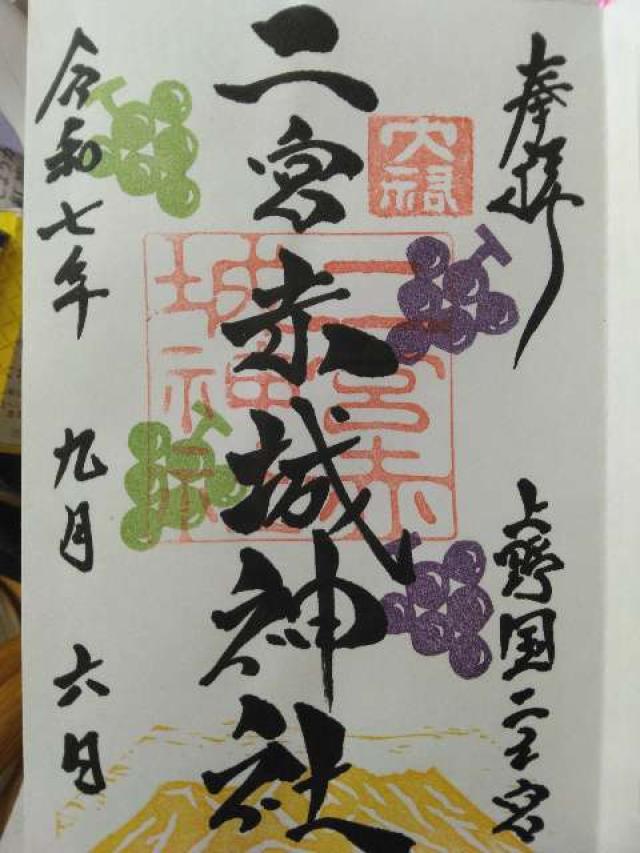 奉拝
上野国二之宮
二宮赤城神社
令和七年 九月 六日
二宮赤城神社